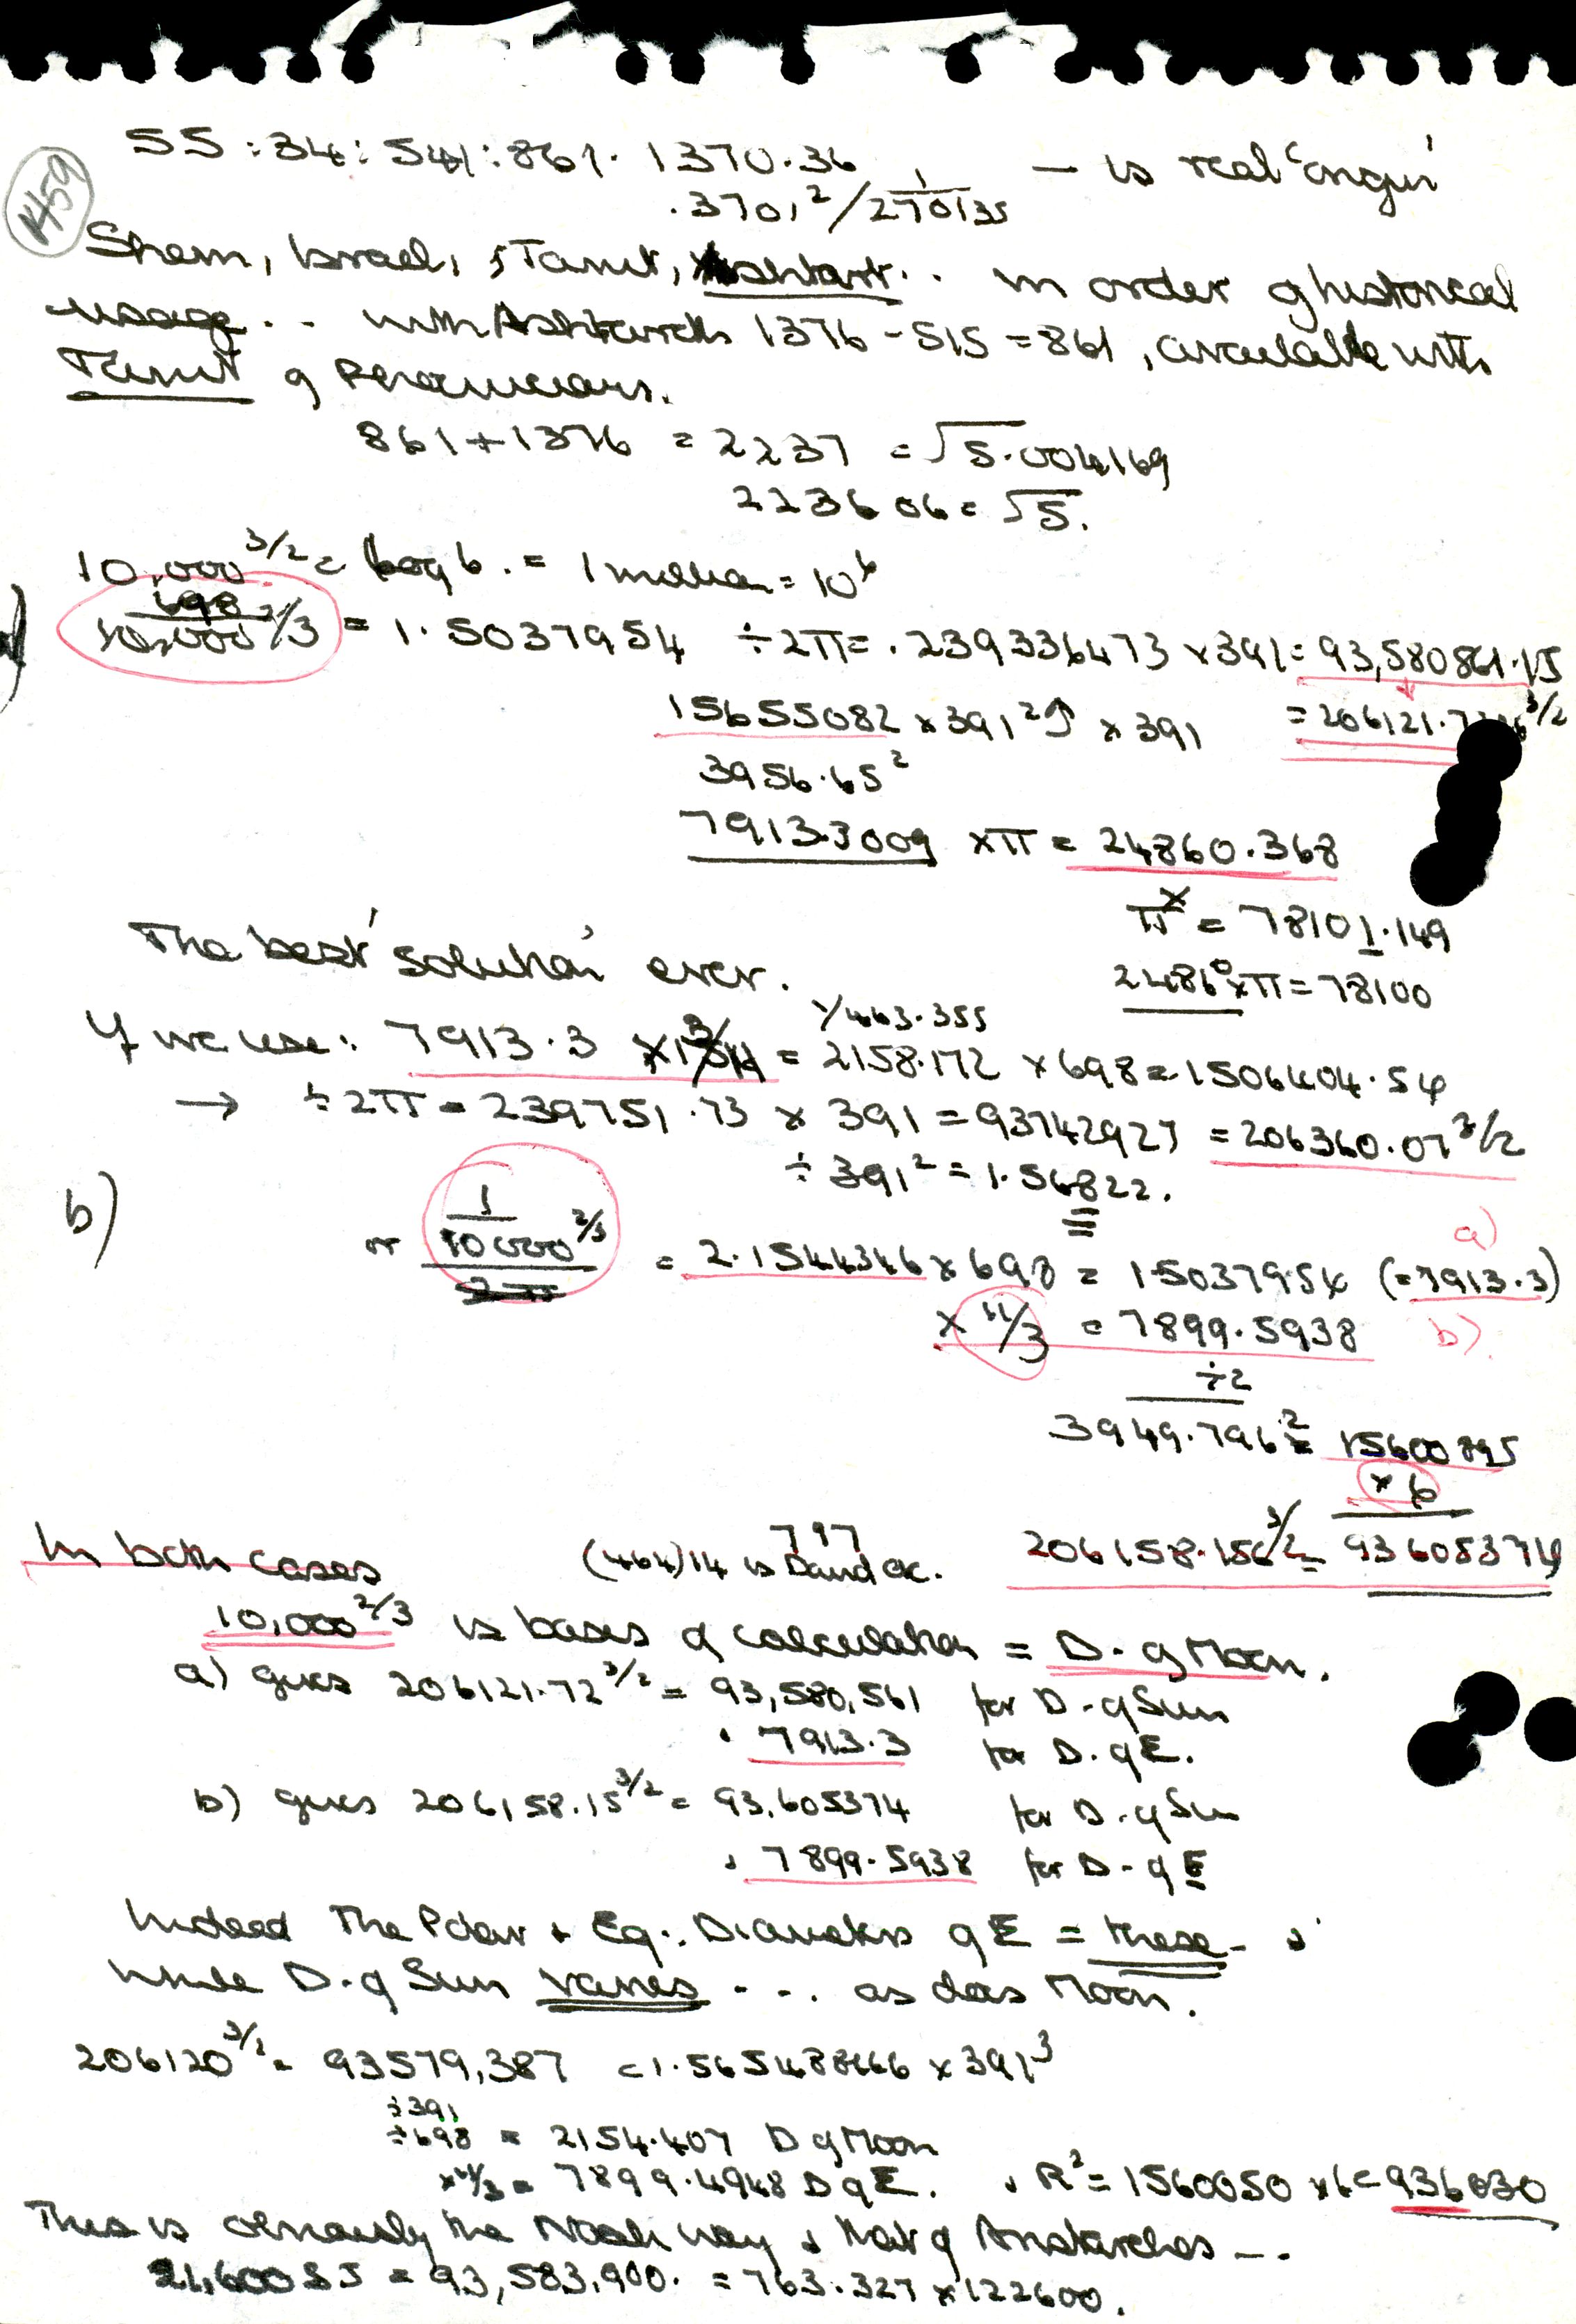 55:34:541:861. 1370.36 — is real 'origin'
.3701²/ 1/270135
1459
Shem, Israel, & Tanit, Ashtart.. in order of historical
usage.. with Ashtaroth 1376-515=861, available with
Tanit of Phoenicians.
861+1376 = 2237 = √5.004169
223606 = √5.
10,000 3/2 = log 6. = 1 million = 10⁶
a) 698/10,000 2/3 = 1.5037954 ÷2π= .239336473 ×391= 93,580861.15
15655082 ×391² ↑ ×391 = 206121.7 3/2
3956.65²
7913.3009 ×π = 24860.368
×π = 78101.149
The best 'solution' ever. 24860×π=78100
1/463.355
If we use: 7913.3 ×3/11 = 2158.172 ×698=1506404.54
→ ÷2π = 239751.73 × 391 = 93742927 = 206360.07 3/2
÷391² = 1.56822.
b) or 1/10000 2/3 = 2.1544346×698 = 1.5037954 (=7913.3) a)
2π
× 11/3 = 7899.5938 b)
÷2
3949.796² = 15600895
×6
In both cases (464)14 is David etc. 206158.156 3/2 = 93605374
797
10,000 2/3 is basis of calculation = D. of Moon.
a) gives 206121.72 3/2 = 93,580,561 for D. of Sun
. 7913.3 for D. of E.
b) gives 206158.15 3/2 = 93,605374 for D. of Sun
, 7899.5938 for D. of E
Indeed The Polar & Eq. Diameters of E = these - &
while D. of Sun varies - ... as does Moon.
206120 3/2 = 93579,387 =1.565488466 × 391³
÷391
÷698 = 2154.407 D of Moon
×11/3 = 7899.4948 D of E. & R²=1560050 ×6=936030
This is obviously the Noah way & that of Aristarchos --.
21,600 SJ = 93,583,900. = 763.327 ×122600.